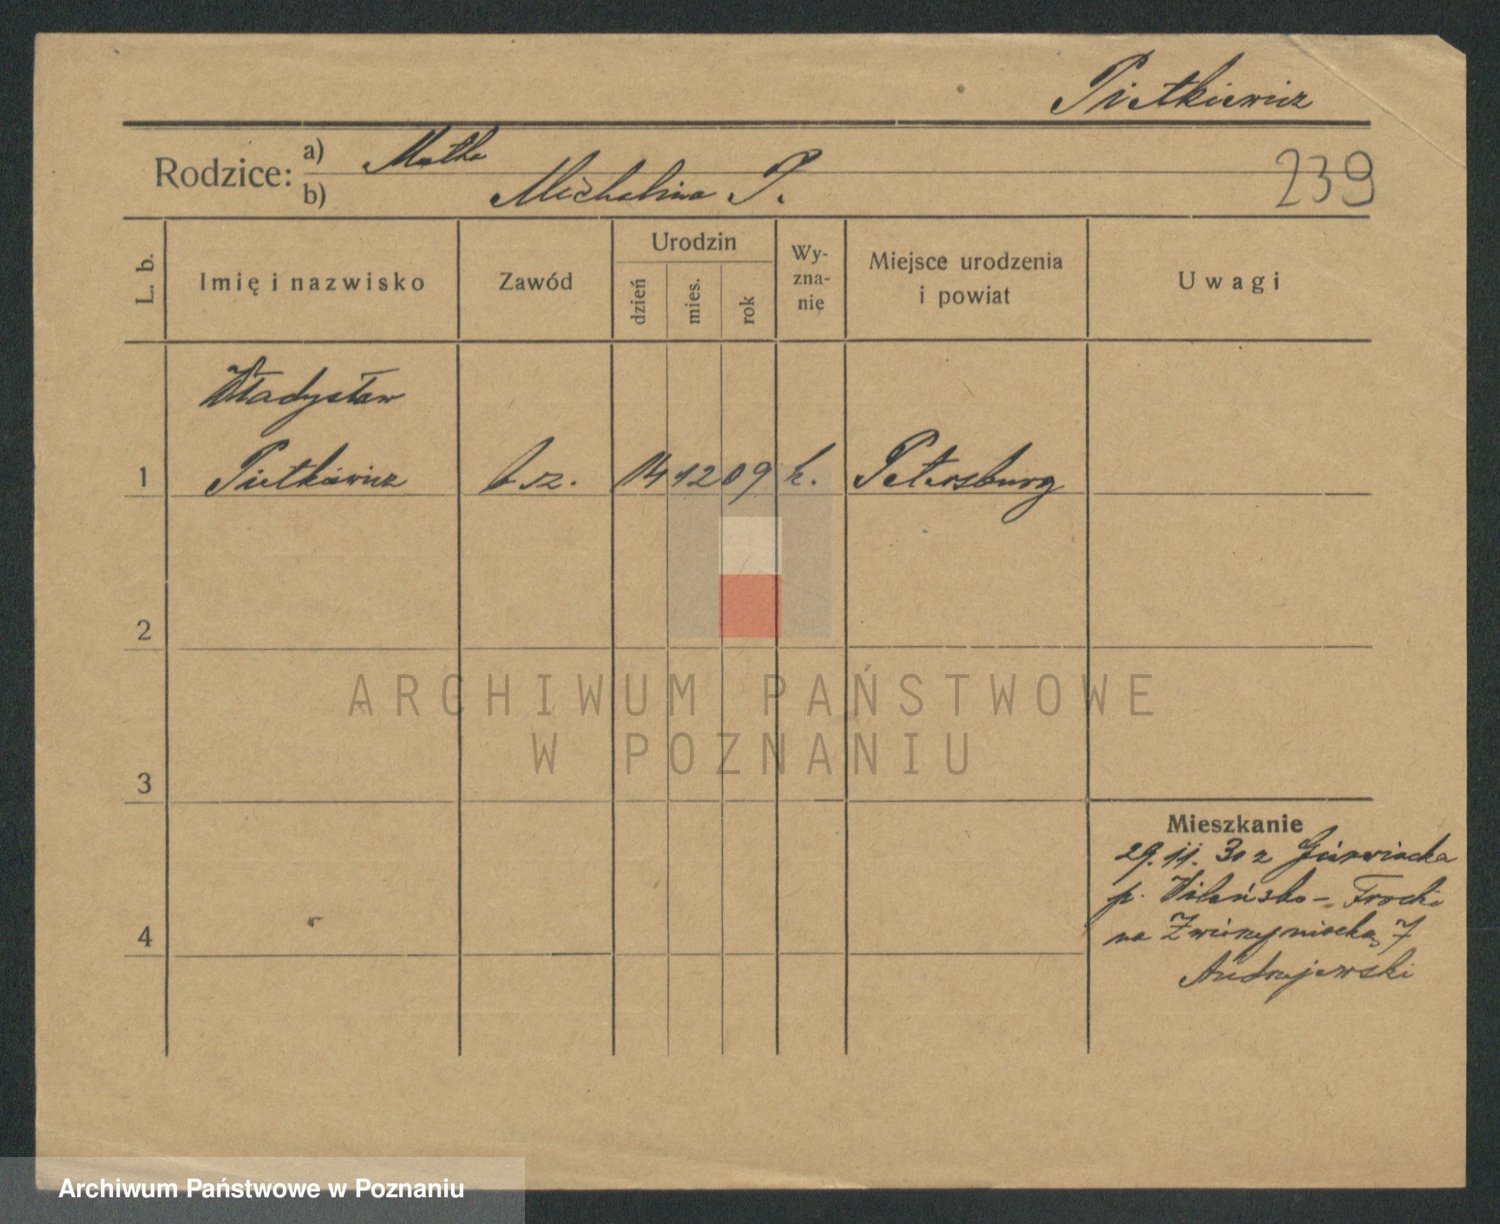 Pietkiewicz
Rodzice: a) Matka
b) Michalina P.
239
L. b.
Imię i nazwisko
Zawód
Urodzin
dzień
mies.
rok
Wy-
zna-
nie
Miejsce urodzenia
i powiat
Uwagi
Władysław
1 Pietkiewicz b. sz. 14 12 09 k. Petersburg
2
3
4
ARCHIWUM PAŃSTWOWE
W POZNANIU
Mieszkanie
29. 11. 30 z
p. Wileńsko-Trocki
na Zwierzyniecką 7
Andrzejewski
Archiwum Państwowe w Poznaniu